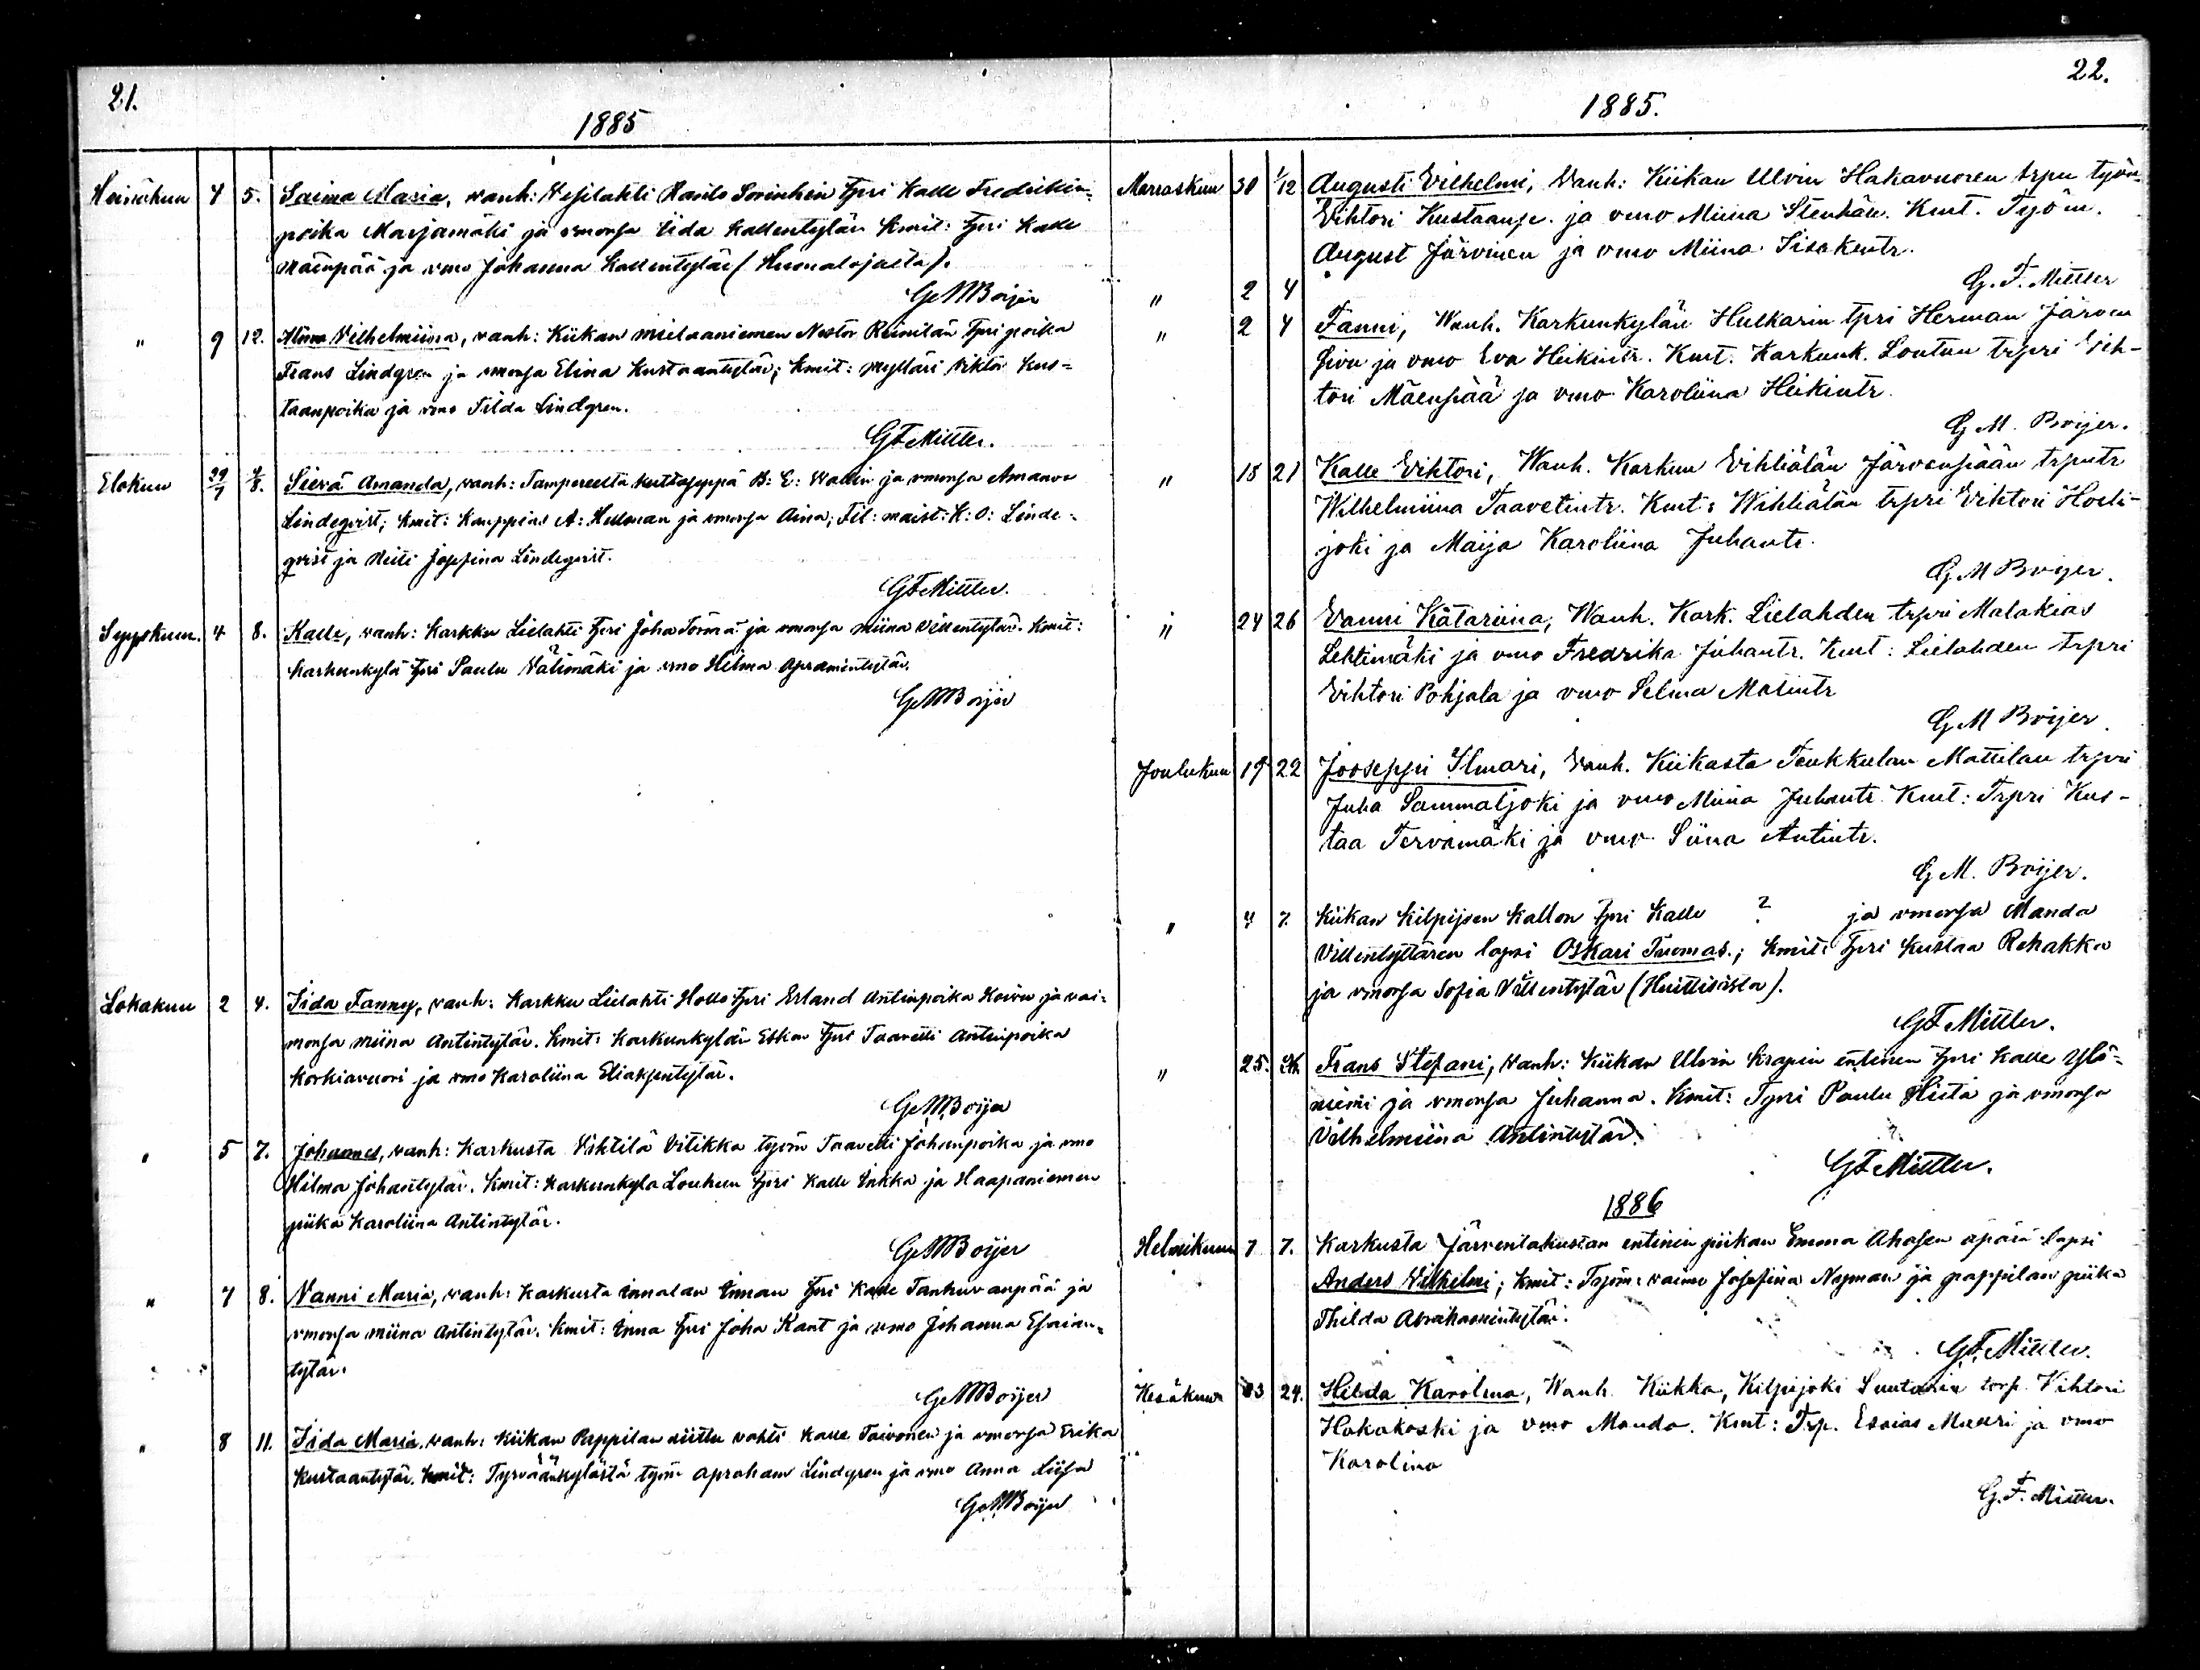 21.
1885
Heinäkuu 4 5. Saima Maria, vanh: Vesilahti Rauto Tpri Kalle Fredrikin-
poika Marjamäki ja vmonsa Iida Kallentytär Kmit: Tpri Kalle
Mäenpää ja vmo Johanna Kallentytär
GMBoijer
" 9 12. Alma Vilhelmiina, vanh: Kiikan Nestor Tpri poika
Frans Lindgren ja vmonsa Elina Kustaantytär; Kmit: Mylläri Viktor Kus=
taanpoika ja vmo Tilda Lindgren.
GFMittler.
Elokuu 29/7 4/8. Sievä Amanda, vanh: Tampereelta B: E: Wallin ja vmonsa Amanda
Lindeqvist; Kmit: Kauppias A: Hellman ja vmonsa Aina; Fil: maist: K: O: Linde-
qvist ja Neiti Josefina Lindeqvist.
GFMittler.
Syyskuu. 4 8. Kalle, vanh: Karkku Lielahti Tpri Joha Törmä ja vmonsa Miina Villentytär. Kmit:
Karkunkylä Tpri Paulu Välimäki ja vmo Hilma Apramintytär.
GMBoijer
Lokakuu 2 4. Iida Fanny, vanh: Karkku Lielahti Hollo Tpri Erland Antinpoika Koivu ja vai=
monsa Miina Antintytär. Kmit: Karkunkylän Tpri Taavetti Antinpoika
Korkiavuori ja vmo Karoliina Eliaksentytär.
GMBoijer
" 5 7. Johannes, vanh: Karkusta Vitikka työm Taavetti Johanpoika ja vmo
Hilma Johantytär. Kmit: Karkunkylä Louhun Tpri Kalle Inkka ja Haapaniemen
piika Karoliina Antintytär.
GMBoijer
" 7 8. Vanni Maria, vanh: Karkusta Innalan Innan Tpri Kalle Tanhuvanpää ja
vmonsa Miina Antintytär. Kmit: Inna Tpri Joha Kant ja vmo Johanna Esaian-
tytär.
GMBoijer
" 8 11. Iida Maria, vanh: Kiikan Pappilan niittu vahti Kalle Toivonen ja vmonsa Erika
Kustaantytär. Kmit: Tyrväänkylästä työm Apraham Lindgren ja vmo Anna Liisa
GMBoijer
22.
1885.
Marraskuu 30 1/12 Augusti Vilhelmi, Vanh: Kiikan Ulvin Hakavuoren trpn työm
Vihtori Kustaanp. ja vmo Miina Kmt. Työm.
August Järvinen ja vmo Miina Iisakintr.
G. F. Mittler
" 2 4
" 2 4 Fanni, Wanh. Karkunkylän Hulkarin tpri Herman Järven
sivu ja vmo Eva Heikintr. Kmt. Karkunk. Loutun trpri Vih-
tori Mäenpää ja vmo Karoliina Heikintr.
G. M. Boijer.
" 18 21 Kalle Vihtori, Wanh. Karkun Vihliälän Järvenpään trpntr
Wilhelmiina Taavetintr. Kmt: Wihliälän trpri Vihtori Hosti-
joki ja Maija Karoliina Juhantr.
G. M Boijer.
" 24 26 Vanni Katariina, Wanh. Kark. Lielahden trpri Malakias
Lehtimäki ja vmo Fredrika Juhantr. Kmt: Lielahden trpri
Vihtori Pohjala ja vmo Selma Matintr
G. M Boijer.
Joulukuu 19 22 Jooseppi Ilmari, Vanh. Kiikasta Teukkulan Mattilan trpri
Juha Sammaljoki ja vmo Miina Juhantr. Kmt: Trpri Kus-
taa Tervamäki ja vmo Siina Antintr.
G. M. Boijer.
" 4 7. Kiikan Kilpijsen Kallon Tpri Kalle ? ja vmonsa Manda
Villentyttären lapsi Oskari Tuomas.; Kmit: Tpri Kustaa Rehakka
ja vmonsa Sofia Villentytär (Huittisista).
GFMittler.
" 25. Frans Stefani, vanh: Kiikan Ulvin Krapin entinen Tpri Kalle Ylö=
niemi ja vmonsa Juhanna. Kmit: Tpri Paulu Hiita ja vmonsa
Vilhelmiina Antintytär.
GFMittler.
1886
Helmikuun 7 7. Karkusta Järventakustan entinen piikan Emma Ahosen äpärä lapsi
Anders Vilhelmi; Kmit: Työm: vaimo Josefina Nyman ja pappilan piika
Thilda Abrahamintytär.
GFMittler.
Kesäkuun 23 24. Hilda Karolina, Wanh. Kiikka, Kilpijoki Suutarin torp. Vihtori
Hakakoski ja vmo Manda. Kmt: Trp. Esaias Muuri ja vmo
Karolina
G. F. Mittler.